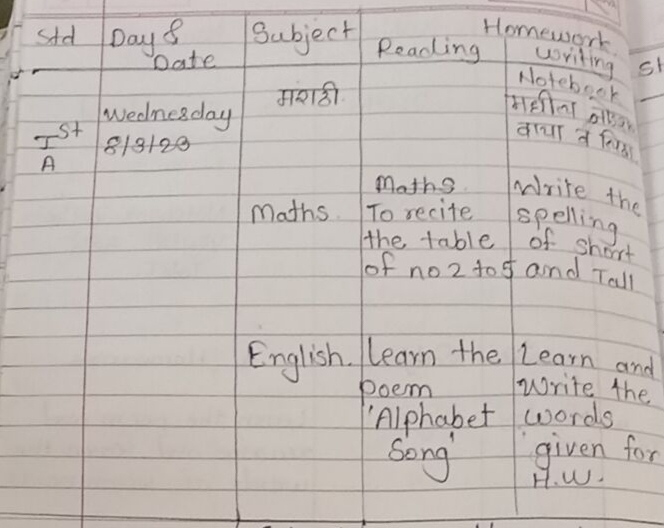 Std Day & Subject Homework
Date Reading Writing
Notebook
Wednesday मराठी महिना
Ist 8/3/23 वाचा व लिहा
A
Maths Write the
Maths To recite spelling
the table of short
of no 2 to 5 and Tall
English. Learn the Learn and
poem Write the
'Alphabet words
Song' given for
H.W.